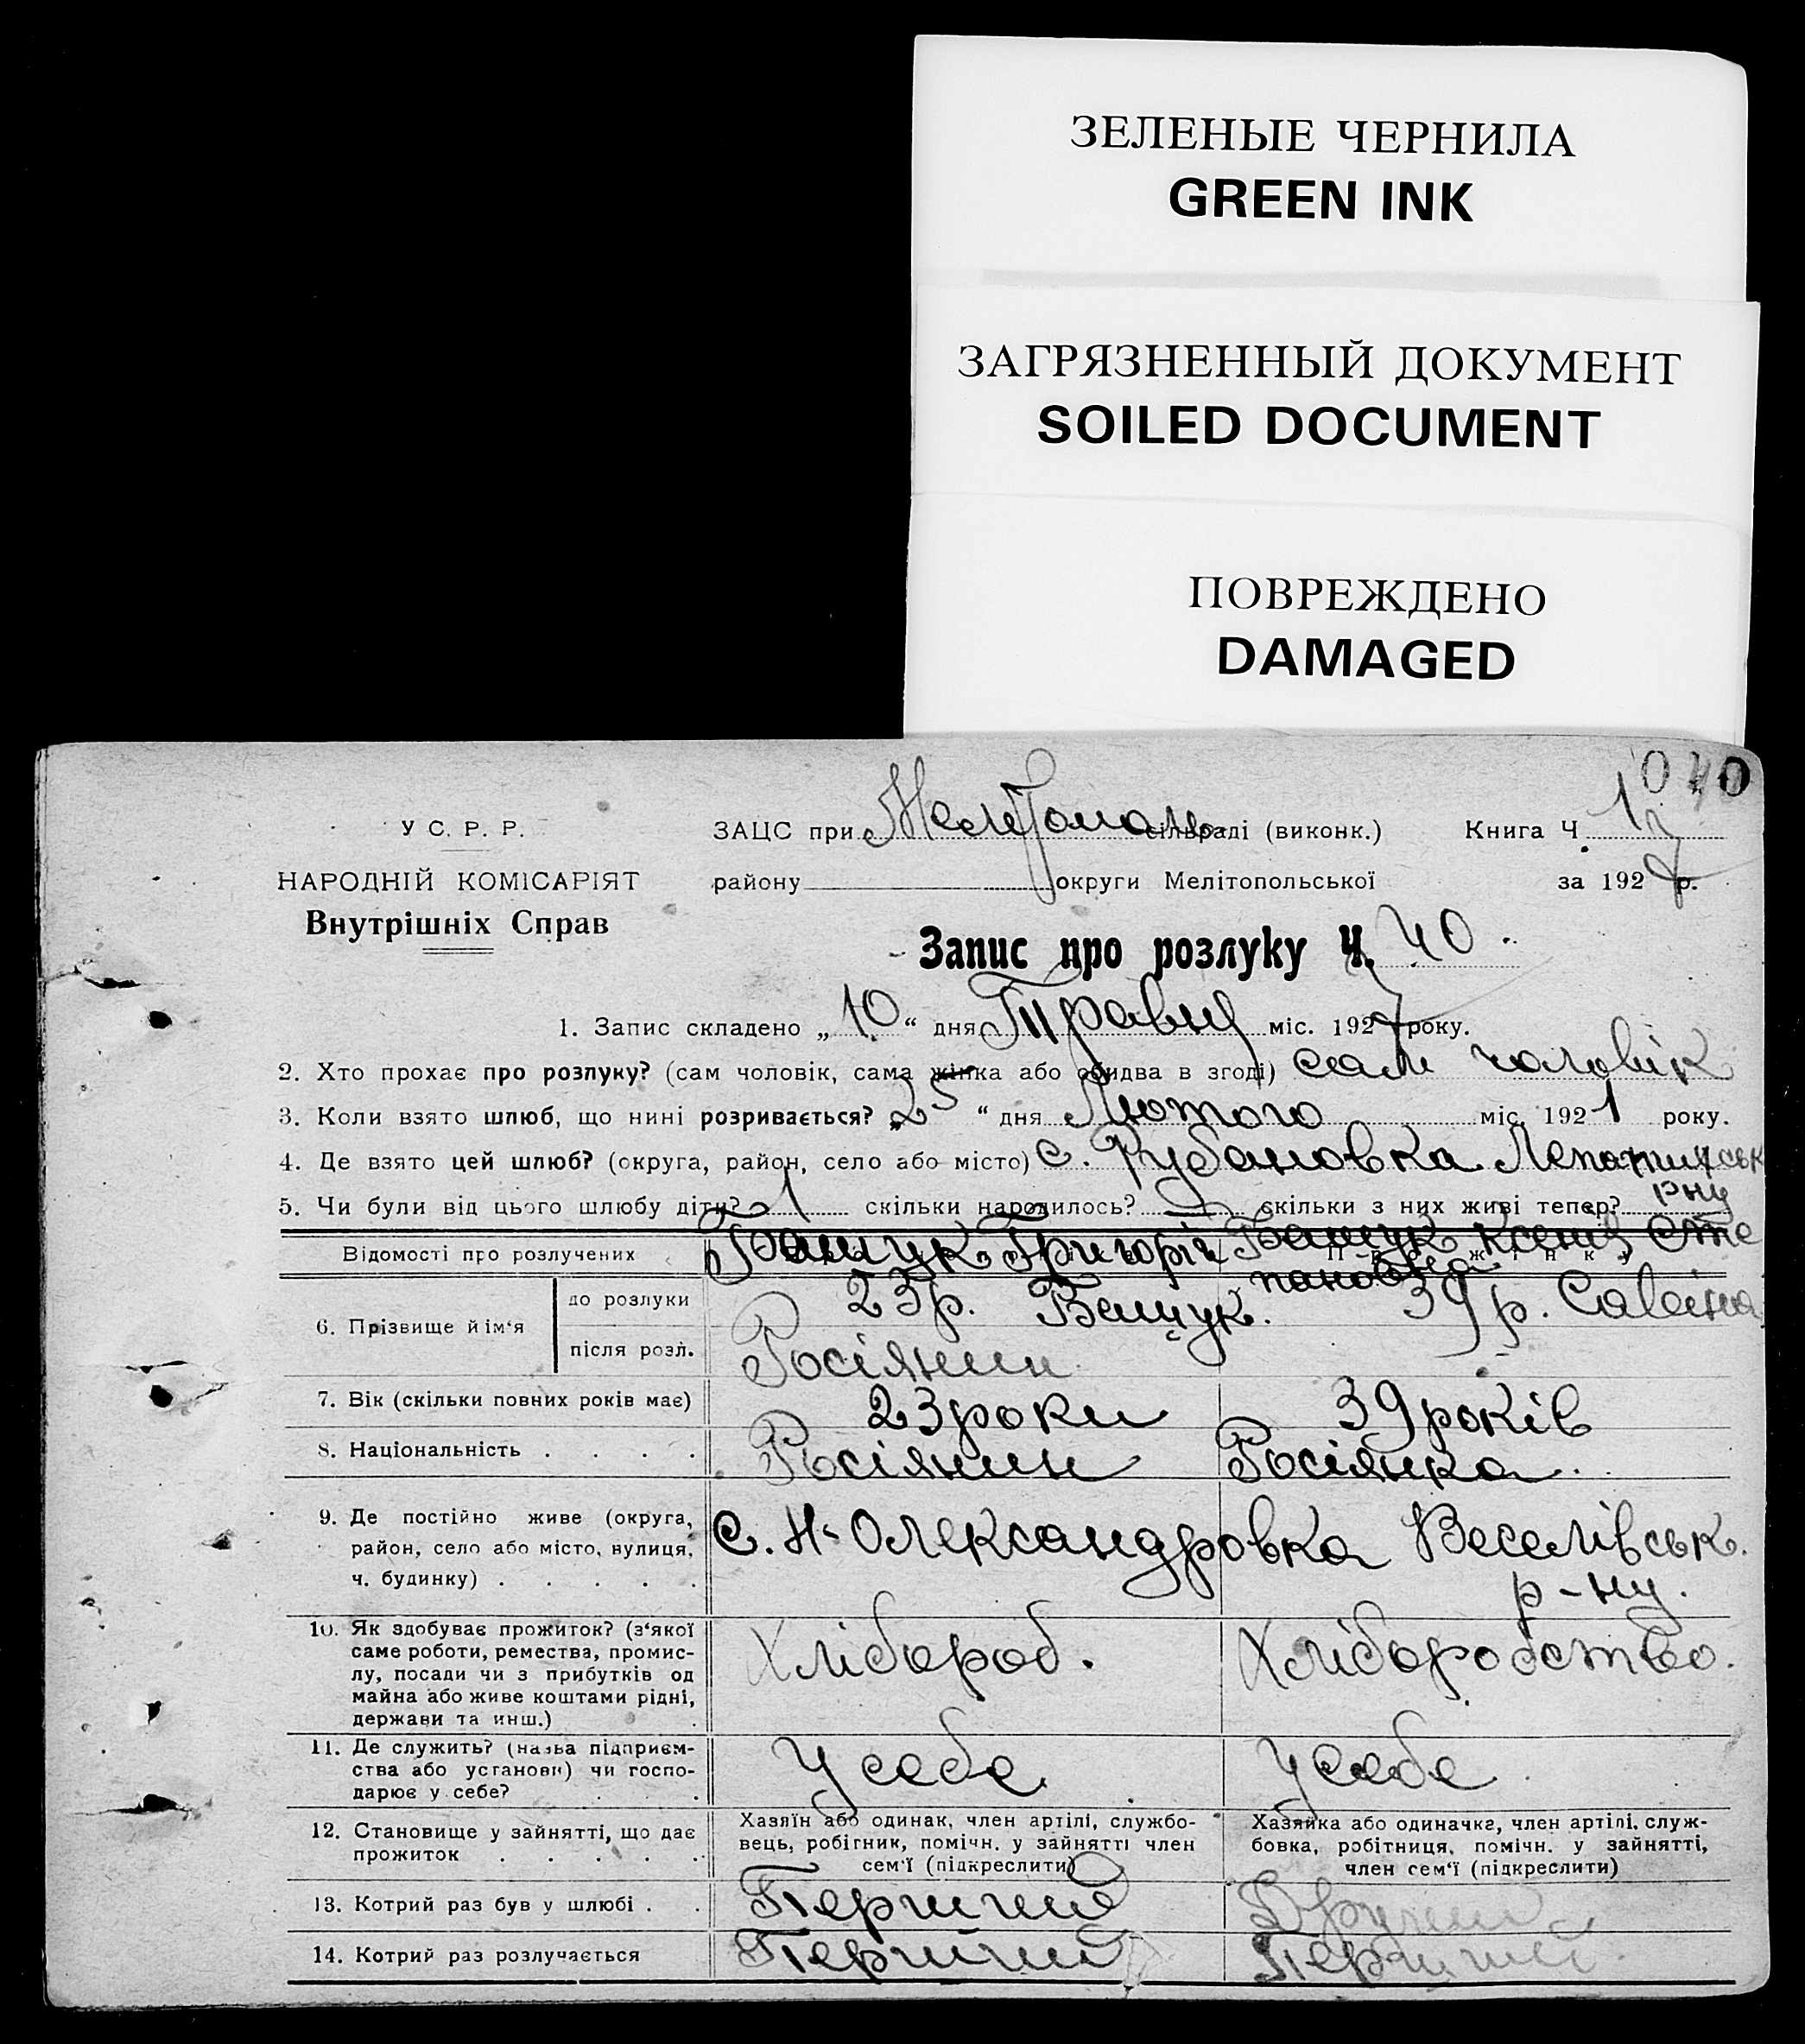 ЗЕЛЕНЫЕ ЧЕРНИЛА
GREEN INK
ЗАГРЯЗНЕННЫЙ ДОКУМЕНТ
SOILED DOCUMENT
ПОВРЕЖДЕНО
DAMAGED
У С. Р. Р.
НАРОДНІЙ КОМІСАРІЯТ
Внутрішніх Справ
ЗАЦС при сільраді (виконк.) Книга Ч 1
району округи Мелітопольської за 1927 р.
Запис про розлуку Ч. 40
1. Запис складено „10“ дня Травня міс. 1927 року.
2. Хто прохає про розлуку? (сам чоловік, сама жінка або обидва в згоді) сам чоловік
3. Коли взято шлюб, що нині розривається? „25“ дня Лютого міс. 1921 року.
4. Де взято цей шлюб? (округа, район, село або місто) с. Рубановка
рну
5. Чи були від цього шлюбу діти? 1 скільки народилось? скільки з них живі тепер?
Відомості про розлучених Бащук Григорій Бащук Ксенія Сте
пановна
6. Прізвище й ім‘я до розлуки 23 р. Бащук. 39 р. Савеіна
після розл. Росіянин
7. Вік (скільки повних років має) 23 роки 39 років
8. Національність . . . . Росіянин Росіянка.
9. Де постійно живе (округа, район, село або місто, вулиця, ч. будинку) . . . . . с. Н-Олександровка Веселівськ.
р-ну.
10. Як здобуває прожиток? (з‘якої
саме роботи, ремества, промис-
лу, посади чи з прибутків од
майна або живе коштами рідні,
держави та инш.)
Хлібороб. Хліборобство.
11. Де служить? (назва підприєм-
ства або установи) чи госпо-
дарює у себе? . .
У себе У себе
12. Становище у зайнятті, що дає
прожиток . . . . .
Хазяїн або одинак, член артілі, службо-
вець, робігник, помічн. у зайнятті член
сем‘ї (підкреслити)
Хазяйка або одиначка, член артілі, служ-
бовка, робітниця, помічн. у зайнятті,
член сем‘ї (підкреслити)
13. Котрий раз був у шлюбі . . Перший Другий
14. Котрий раз розлучається Перший Перший